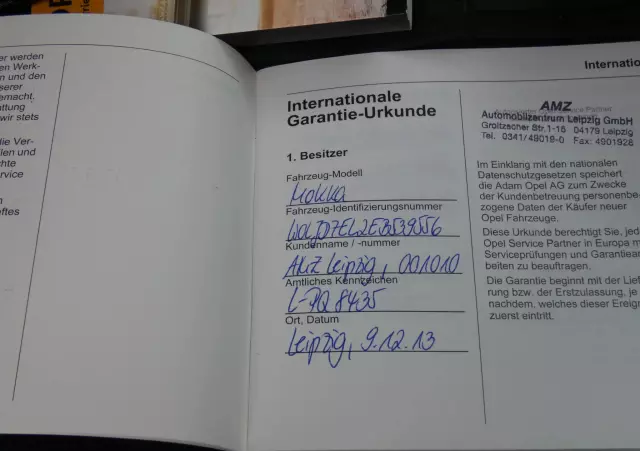 er werden
en Werk-
n und den
serer
emacht,
attung
wir stets
die Ver-
len und
chte
ervice
n
eftes
Internationale
Garantie-Urkunde
1. Besitzer
Fahrzeug-Modell
Mokka
Fahrzeug-Identifizierungsnummer
Kundenname / -nummer
AMZ Leipzig, 001010
Amtliches Kennzeichen
L-PQ 8435
Ort, Datum
Leipzig, 9.12.13
Internatio
AMZ
Automobilzentrum Leipzig GmbH
04179 Leipzig
Tel. 0341/49019-0 Fax: 4901928
Im Einklang mit den nationalen
Datenschutzgesetzen speichert
die Adam Opel AG zum Zwecke
der Kundenbetreuung personenbe-
zogene Daten der Käufer neuer
Opel Fahrzeuge.
Diese Urkunde berechtigt Sie, jed
Opel Service Partner in Europa m
Serviceprüfungen und Garantiear
beiten zu beauftragen.
Die Garantie beginnt mit der Lief
rung bzw. der Erstzulassung, je
nachdem, welches dieser Ereign
zuerst eintritt.